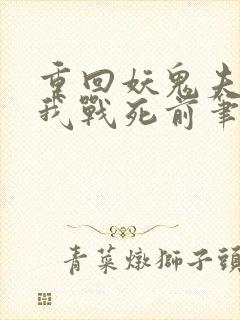 重回妖鬼夫
我戰死前筆
青菜燉獅子頭